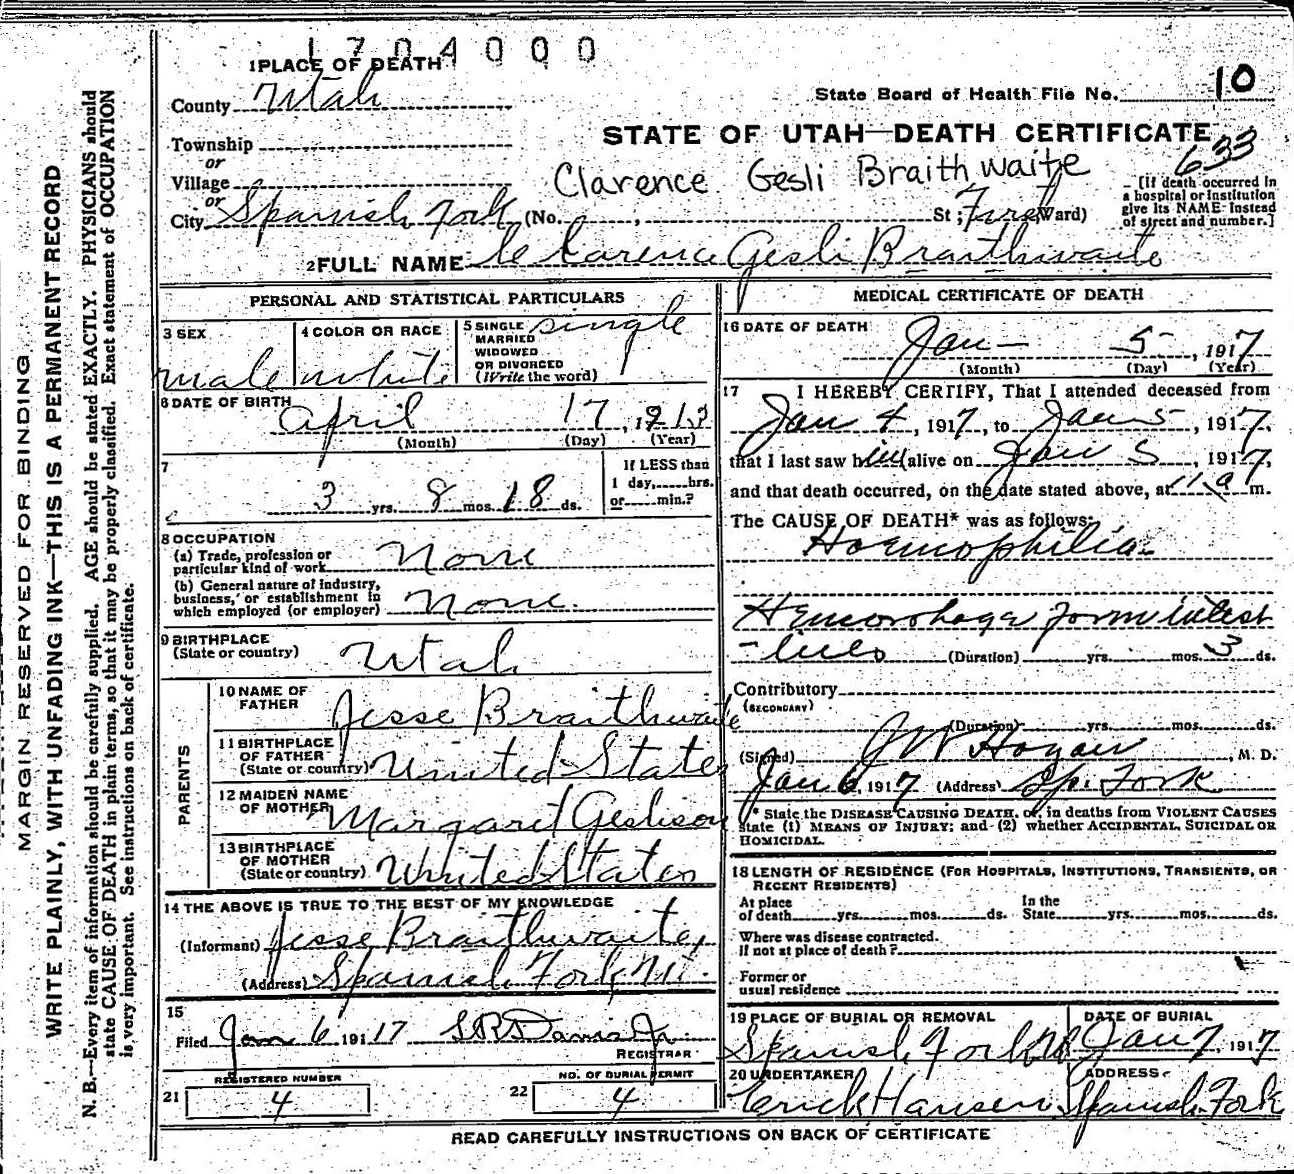 1704000
1 PLACE OF DEATH
County Utah
State Board of Health File No. 10
Township
or
STATE OF UTAH—DEATH CERTIFICATE
633
Village
or
Clarence Gesli Braithwaite
City Spanish Fork (No. , St ; Ward)
[If death occurred in
a hospital or institution
give its NAME instead
of street and number.]
2 FULL NAME Clarence Gesli Braithwaite
PERSONAL AND STATISTICAL PARTICULARS
3 SEX
male
4 COLOR OR RACE
white
5 SINGLE
MARRIED
WIDOWED
OR DIVORCED
(Write the word)
single
6 DATE OF BIRTH
April 17, 1913
(Month) (Day) (Year)
7
3 yrs. 8 mos. 18 ds.
If LESS than
1 day, hrs.
or min.?
8 OCCUPATION
(a) Trade, profession or
particular kind of work None
(b) General nature of industry,
business, or establishment in
which employed (or employer) None.
9 BIRTHPLACE
(State or country) Utah
PARENTS
10 NAME OF
FATHER Jesse Braithwaite
11 BIRTHPLACE
OF FATHER
(State or country) United States
12 MAIDEN NAME
OF MOTHER Margaret Geslison
13 BIRTHPLACE
OF MOTHER
(State or country) United States
14 THE ABOVE IS TRUE TO THE BEST OF MY KNOWLEDGE
(Informant) Jesse Braithwaite,
(Address) Spanish Fork, Ut.
15
Filed Jan 6 1917
REGISTRAR
REGISTERED NUMBER
21 4
NO. OF BURIAL PERMIT
22 4
MEDICAL CERTIFICATE OF DEATH
16 DATE OF DEATH
Jan— 5, 1917
(Month) (Day) (Year)
17 I HEREBY CERTIFY, That I attended deceased from
Jan 4, 1917, to Jan 5, 1917.
that I last saw him alive on Jan 5, 1917,
and that death occurred, on the date stated above, at 11 a m.
The CAUSE OF DEATH* was as follows:
Haemophilia
Hemorrhage form intest
-ines (Duration) yrs. mos. 3 ds.
Contributory
(SECONDARY)
(Duration) yrs. mos. ds.
(Signed) J W Hagan, M. D.
Jan 6, 1917 (Address) Sp. Fork
* State the DISEASE CAUSING DEATH, or, in deaths from VIOLENT CAUSES
state (1) MEANS OF INJURY; and (2) whether ACCIDENTAL, SUICIDAL OR
HOMICIDAL.
18 LENGTH OF RESIDENCE (FOR HOSPITALS, INSTITUTIONS, TRANSIENTS, OR
RECENT RESIDENTS)
At place
of death yrs. mos. ds.
In the
State yrs. mos. ds.
Where was disease contracted.
If not at place of death?
Former or
usual residence
19 PLACE OF BURIAL OR REMOVAL
Spanish Fork Ut
DATE OF BURIAL
Jan 7, 1917
20 UNDERTAKER
Hansen
ADDRESS
Spanish Fork
READ CAREFULLY INSTRUCTIONS ON BACK OF CERTIFICATE
MARGIN RESERVED FOR BINDING
WRITE PLAINLY, WITH UNFADING INK—THIS IS A PERMANENT RECORD
N. B.—Every item of information should be carefully supplied. AGE should be stated EXACTLY. PHYSICIANS should
state CAUSE OF DEATH in plain terms, so that it may be properly classified. Exact statement of OCCUPATION
is very important. See instructions on back of certificate.